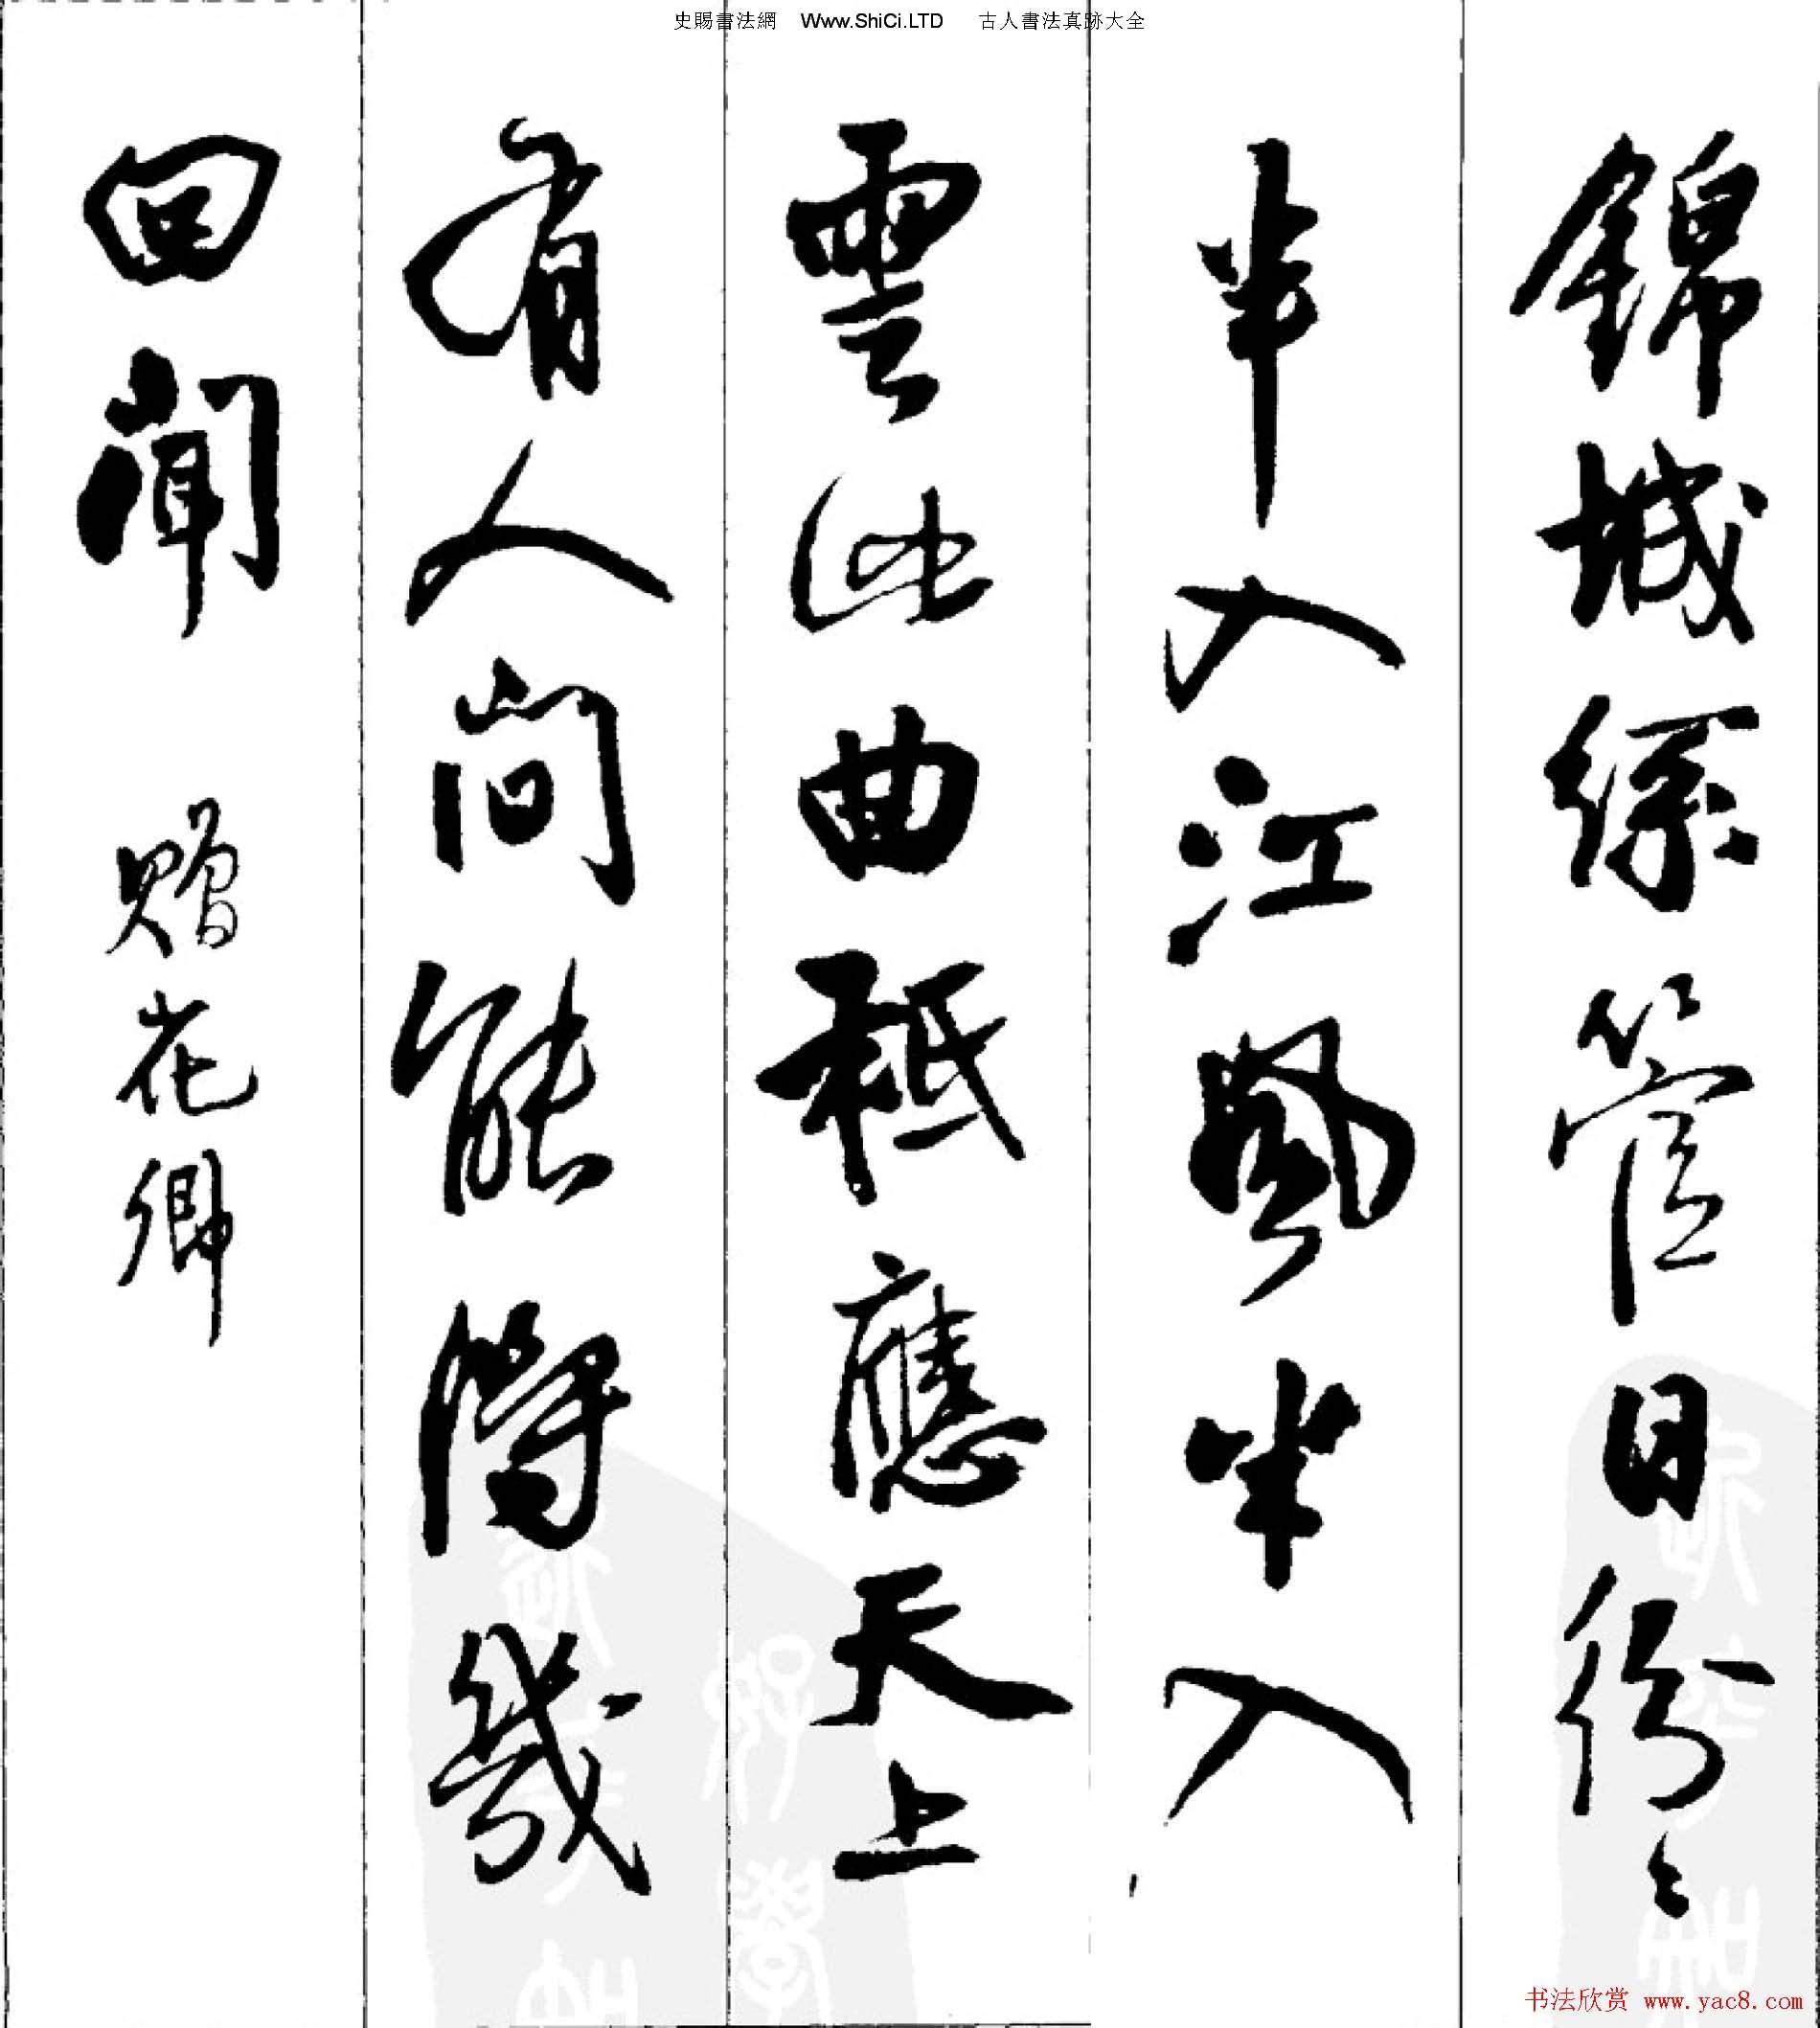 史賜書法網 Www.ShiCi.LTD 古人書法真跡大全
錦城絲管日紛々
半入江風半入
雲此曲祗應天上
有人間能得幾
回聞 贈花卿
书法欣赏 www.yac8.com